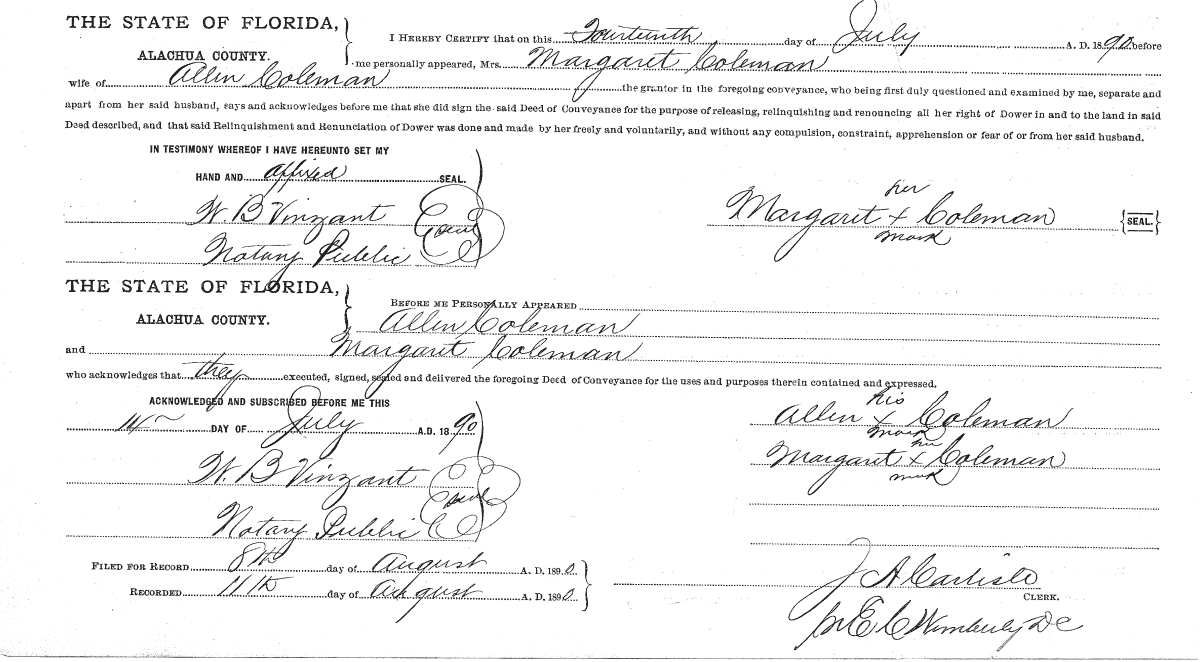 THE STATE OF FLORIDA,
ALACHUA COUNTY.
I HEREBY CERTIFY that on this Fourteenth day of July A. D. 1890 before
me personally appeared, Mrs. Margaret Coleman
wife of Allen Coleman the grantor in the foregoing conveyance, who being first duly questioned and examined by me, separate and
apart from her said husband, says and acknowledges before me that she did sign the said Deed of Conveyance for the purpose of releasing, relinquishing and renouncing all her right of Dower in and to the land in said
Deed described, and that said Relinquishment and Renunciation of Dower was done and made by her freely and voluntarily, and without any compulsion, constraint, apprehension or fear of or from her said husband.
IN TESTIMONY WHEREOF I HAVE HEREUNTO SET MY
HAND AND affixed SEAL.
W. B Vinzant Seal
Notary Public
her
Margaret x Coleman {SEAL}
mark
THE STATE OF FLORIDA,
ALACHUA COUNTY.
BEFORE ME PERSONALLY APPEARED
Allen Coleman
and Margaret Coleman
who acknowledges that they executed, signed, sealed and delivered the foregoing Deed of Conveyance for the uses and purposes therein contained and expressed.
ACKNOWLEDGED AND SUBSCRIBED BEFORE ME THIS
14 DAY OF July A.D. 1890
W. B Vinzant Seal
Notary Public
his
Allen x Coleman
mark her
Margaret x Coleman
mark
FILED FOR RECORD 8th day of August A. D. 1890
RECORDED 11th day of August A. D. 1890
J A Carlisle
CLERK.
pr E C Wimberly DC